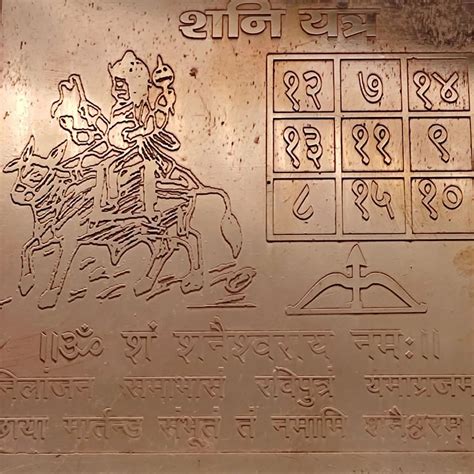 शनि यत्र
१२ ७ १४
१३ ११ ९
८ १५ १०
।।ॐ शं शनैश्वराय नमः।।
निलांजन समाभासं रविपुत्रं यमाप्रजम
छाया मार्तन्ड संभूतं तं नमामि शनैश्चरम्